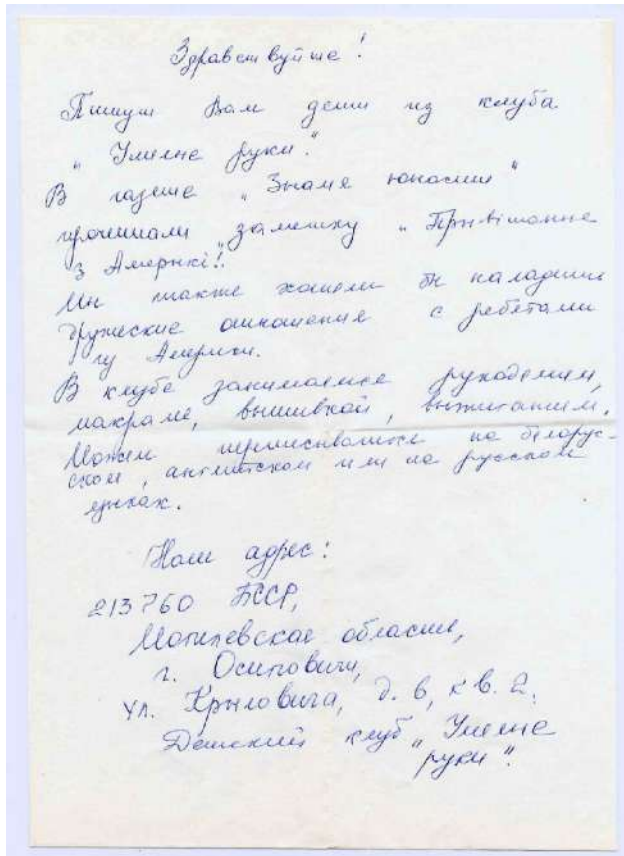 Здравствуйте!
Пишут Вам дети из клуба
"Умелые руки".
В газете "Знамя юности"
прочитали заметку "Прывітанне
з Амерыкі!"
Мы также хотели бы наладить
дружеские отношения с ребятами
из Америки.
В клубе занимаемся рукоделием,
макраме, вышивкой, выжиганием.
Можем переписываться на белорус-
ском, английском или на русском
языках.
Наш адрес:
213760 БССР,
Могилевская область,
г. Осиповичи,
ул. Крыловича, д. 6, кв. 2.
Детский клуб "Умелые
руки".